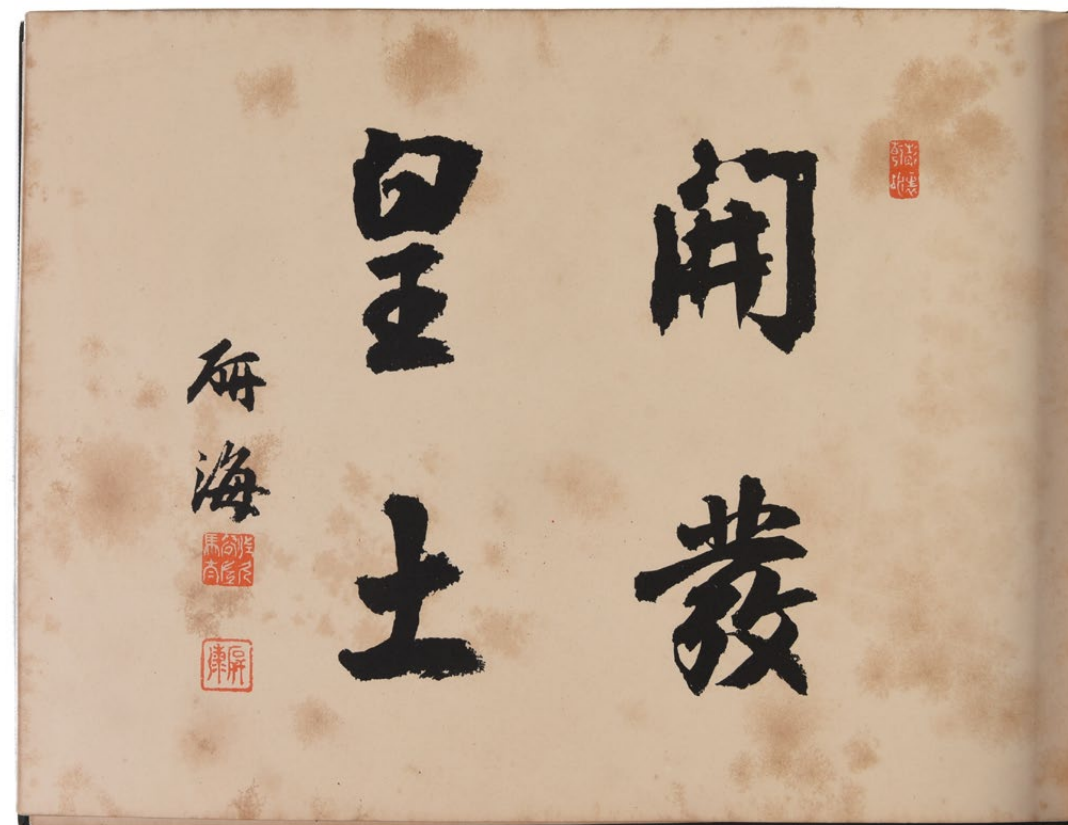 開發
皇土
研海